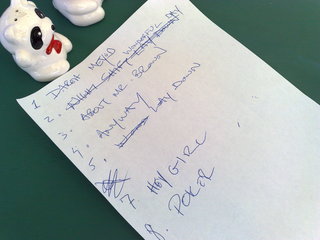 1
2. WONDERFUL DAY
3. ABOUT MR. BROWN
4. ANYWAY
5. LAY DOWN
7. HEY GIRL
8. POKER